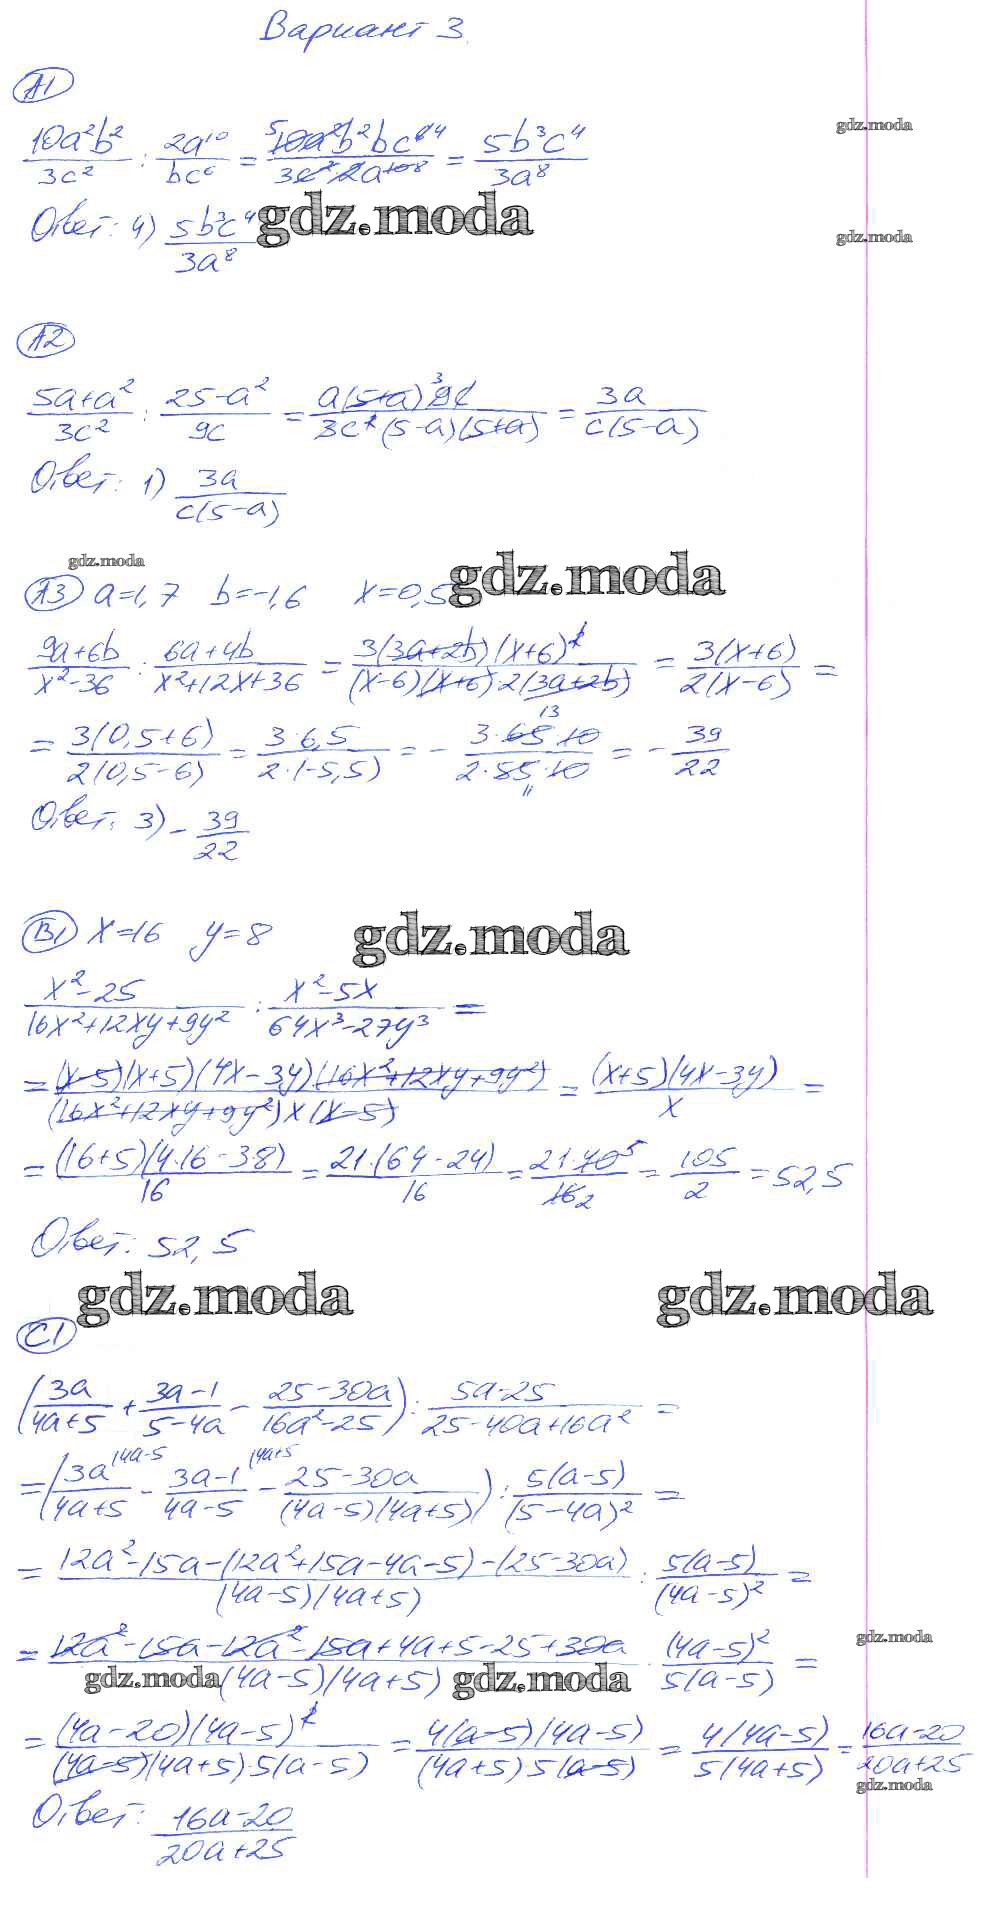 Вариант 3.
A1
10a²b²/3c² : 2a¹⁰/bc⁶ = 10a²b²bc⁶/3c²·2a¹⁰ = 5b³c⁴/3a⁸
gdz.moda
Ответ: 4) 5b³c⁴/3a⁸
gdz.moda
gdz.moda
A2
5a+a²/3c² : 25-a²/9c = a(5+a)9c/3c²(5-a)(5+a) = 3a/c(5-a)
Ответ: 1) 3a/c(5-a)
gdz.moda
gdz.moda
A3 a=1,7 b=-1,6 x=0,5
9a+6b/x²-36 : 6a+4b/x²+12x+36 = 3(3a+2b)(x+6)²/(x-6)(x+6)2(3a+2b) = 3(x+6)/2(x-6) =
= 3(0,5+6)/2(0,5-6) = 3·6,5/2·(-5,5) = - 3·65·10/2·55·10 = - 39/22
Ответ: 3) - 39/22
B1 x=16 y=8
gdz.moda
x²-25/16x²+12xy+9y² : x²-5x/64x³-27y³ =
= (x-5)(x+5)(4x-3y)(16x²+12xy+9y²)/(16x²+12xy+9y²)x(x-5) = (x+5)(4x-3y)/x =
= (16+5)(4·16-3·8)/16 = 21·(64-24)/16 = 21·40/16 = 105/2 = 52,5
Ответ: 52,5
gdz.moda
gdz.moda
C1
(3a/4a+5 + 3a-1/5-4a - 25-30a/16a²-25) : 5a-25/25-40a+16a² =
= (3a/4a+5 (4a-5 - 3a-1/4a-5 (4a+5 - 25-30a/(4a-5)(4a+5)) : 5(a-5)/(5-4a)² =
= 12a²-15a-(12a²+15a-4a-5)-(25-30a)/(4a-5)(4a+5) : 5(a-5)/(4a-5)² =
= 12a²-15a-12a²-15a+4a+5-25+30a/(4a-5)(4a+5) · (4a-5)²/5(a-5) =
gdz.moda
gdz.moda
gdz.moda
= (4a-20)(4a-5)²/(4a-5)(4a+5)·5(a-5) = 4(a-5)(4a-5)/(4a+5)5(a-5) = 4(4a-5)/5(4a+5) = 16a-20/20a+25
gdz.moda
Ответ: 16a-20/20a+25